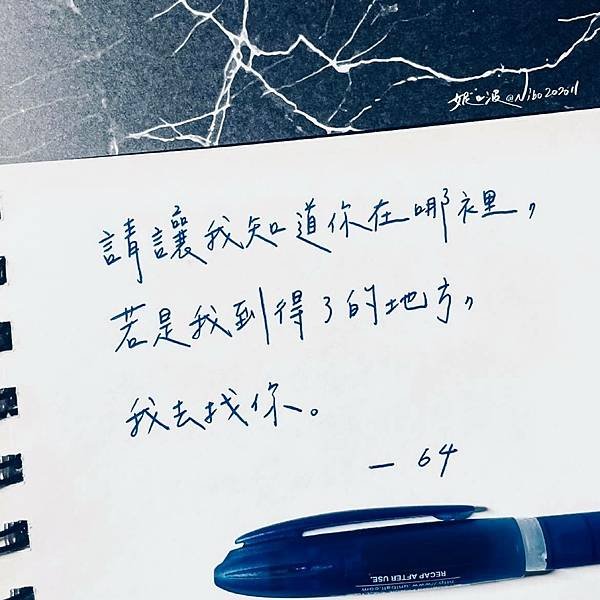 妮波@Nibo202011
請讓我知道你在哪裡，
若是我到得了的地方，
我去找你。
— 64
RECAP AFTER USE.
http://www.uniball.com